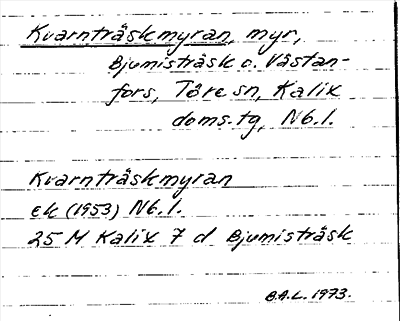 Kvarnträskmyran, myr,
Bjumisträsk o. Västan-
fors, Töre sn, Kalix
doms.tg, Nb.l.
Kvarnträskmyran
ek (1953) Nb.l.
25 M Kalix 7 d Bjumisträsk
B.A.L. 1973.